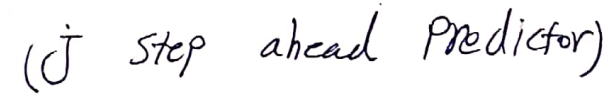 (j step ahead Predictor)